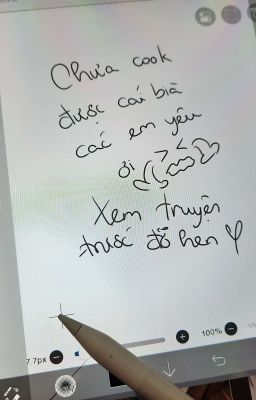 Chưa cook
được cái bìa
các em yêu
ơi
Xem truyện
trước đỡ hen
7.7px
100%